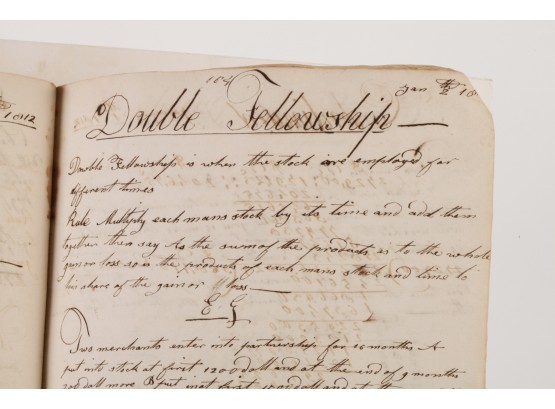 1812
164
Jan th 2 18
Double Fellowship
Double Fellowship is when the stock are employed for
different times
Rule Multiply each mans stock by its time and add them
together then say As the sum of the products is to the whole
gain or loss so is the products of each mans stock and time to
his share of the gain or loss
E G
Two merchants enter into partnership for 16 months A
put into stock at first 1200 doll and at the end of 9 months
200 doll more B put in at first 1500 doll and at the